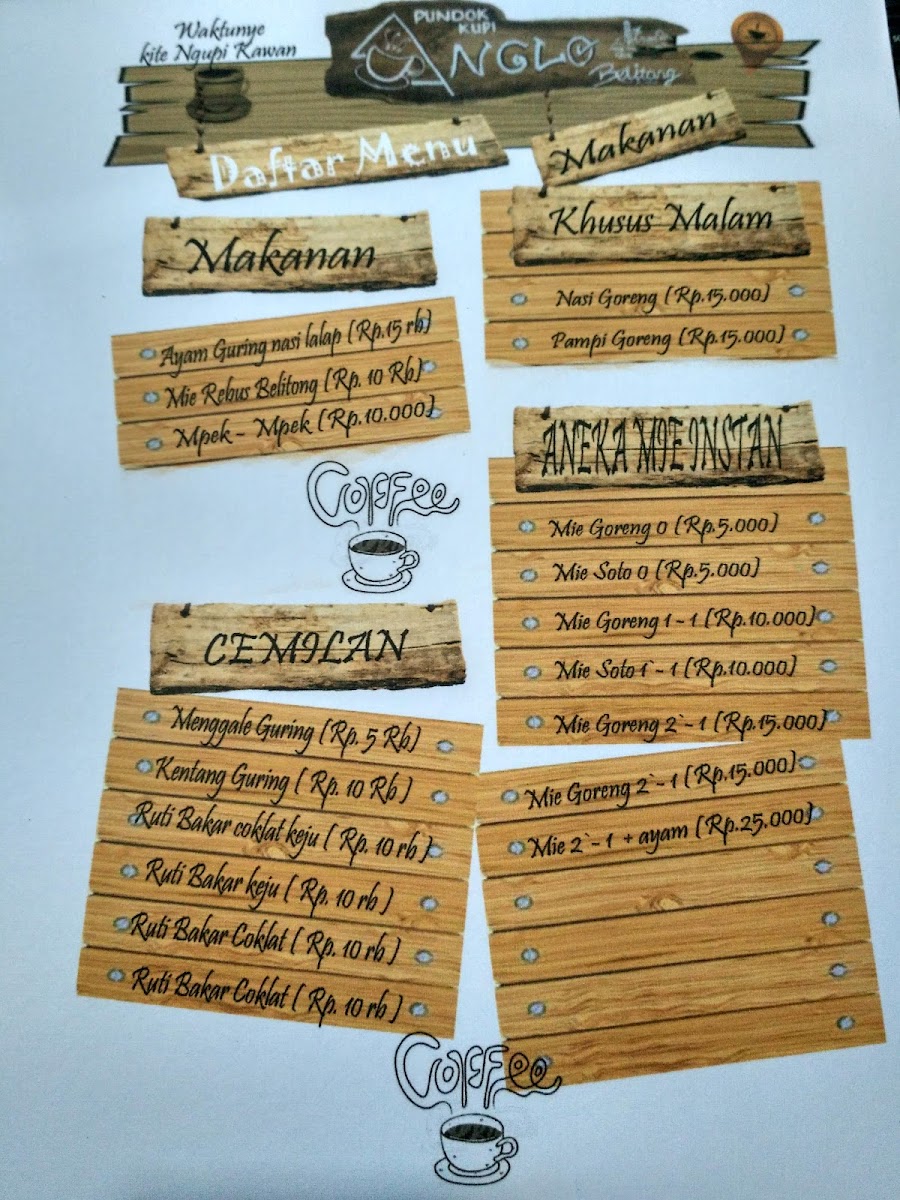 Waktunye
kite Ngupi Kawan
PUNDOK
KUPI
ANGLO
Belitong
Daftar Menu
Makanan
Ayam Guring nasi lalap (Rp.15 rb)
Mie Rebus Belitong (Rp. 10 Rb)
Mpek - Mpek (Rp.10.000)
Coffee
CEMILAN
Menggale Guring (Rp. 5 Rb)
Kentang Guring ( Rp. 10 Rb )
Ruti Bakar coklat keju ( Rp. 10 rb )
Ruti Bakar keju ( Rp. 10 rb )
Ruti Bakar Coklat ( Rp. 10 rb )
Ruti Bakar Coklat ( Rp. 10 rb )
Makanan
Khusus Malam
Nasi Goreng (Rp.15.000)
Pampi Goreng (Rp.15.000)
ANEKA MIE INSTAN
Mie Goreng 0 (Rp.5.000)
Mie Soto 0 (Rp.5.000)
Mie Goreng 1 - 1 (Rp.10.000)
Mie Soto 1`- 1 (Rp.10.000)
Mie Goreng 2`- 1 (Rp.15.000)
Mie Goreng 2`- 1 (Rp.15.000)
Mie 2`- 1 + ayam (Rp.25.000)
Coffee